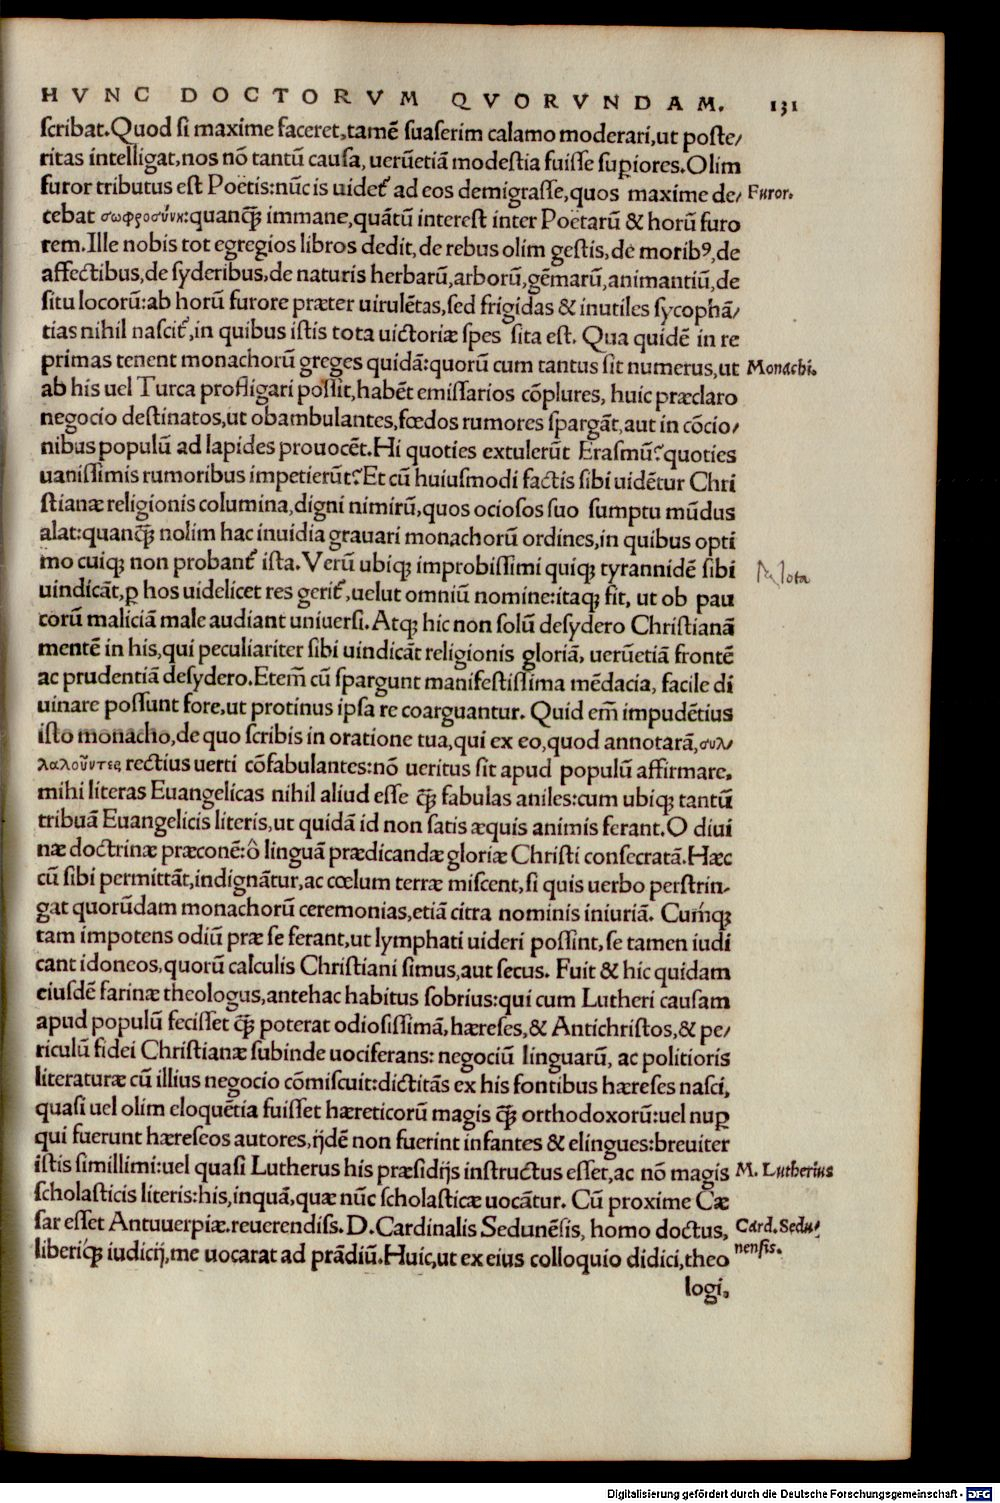 HVNC DOCTORVM QVORVNDAM. 131
scribat.Quod si maxime faceret,tamẽ suaserim calamo moderari,ut poste/
ritas intelligat,nos nõ tantũ causa, uerũetiã modestia fuisse supiores.Olim
furor tributus est Poetis:nũc is uidet᷑ ad eos demigrasse,quos maxime de/ Furor.
cebat σωφροσύνη:quanꝙ̃ immane,quãtũ interest inter Poëtarũ & horũ furo
rem.Ille nobis tot egregios libros dedit,de rebus olim gestis,de moribꝰ,de
affectibus,de syderibus,de naturis herbarũ,arborũ,gẽmarũ,animantiũ,de
situ locorũ:ab horũ furore præter uirulẽtas,sed frigidas & inutiles sycophã/
tias nihil nascit᷑,in quibus istis tota uictoriæ spes sita est. Qua quidẽ in re
primas tenent monachorũ greges quidã:quorũ cum tantus sit numerus,ut Monachi.
ab his uel Turca profligari possit,habẽt emissarios cõplures, huic præclaro
negocio destinatos,ut obambulantes,fœdos rumores spargãt,aut in cõcio/
nibus populũ ad lapides prouocẽt.Hi quoties extulerũt Erasmũ?quoties
uanissimis rumoribus impetierũt?Et cũ huiusmodi factis sibi uidẽtur Chri
stianæ religionis columina,digni nimirũ,quos ociosos suo sumptu mũdus
alat:quanꝙ̃ nolim hac inuidia grauari monachorũ ordines,in quibus opti
mo cuiqꝫ non probant᷑ ista. Verũ ubiqꝫ improbissimi quiqꝫ tyrannidẽ sibi
uindicãt,ꝑ hos uidelicet res gerit᷑,uelut omniũ nomine:itaqꝫ fit, ut ob pau Nota
corũ maliciã male audiant uniuersi.Atqꝫ hic non solũ desydero Christianã
mentẽ in his,qui peculiariter sibi uindicãt religionis gloriã, uerũetiã frontẽ
ac prudentiã desydero.Etem̃ cũ spargunt manifestissima mẽdacia, facile di
uinare possunt fore,ut protinus ipsa re coarguantur. Quid em̃ impudẽtius
isto monacho,de quo scribis in oratione tua,qui ex eo,quod annotarã,συλ/
λαλοῦντες rectius uerti cõfabulantes:nõ ueritus sit apud populũ affirmare,
mihi literas Euangelicas nihil aliud esse ꝙ̃ fabulas aniles:cum ubiqꝫ tantũ
tribuã Euangelicis literis,ut quidã id non satis æquis animis ferant.O diui
næ doctrinæ præconẽ:ô linguã prædicandæ gloriæ Christi consecratã.Hæc
cũ sibi permittãt,indignãtur,ac cœlum terræ miscent,si quis uerbo perstrin-
gat quorũdam monachorũ ceremonias,etiã citra nominis iniuriã. Cumqꝫ
tam impotens odiũ præ se ferant,ut lymphati uideri possint,se tamen iudi
cant idoneos,quorũ calculis Christiani simus,aut secus. Fuit & hic quidam
eiusdẽ farinæ theologus,antehac habitus sobrius:qui cum Lutheri causam
apud populũ fecisset ꝙ̃ poterat odiosissimã,hæreses,& Antichristos,& pe/
riculũ fidei Christianæ subinde uociferans: negociũ linguarũ, ac politioris
literaturæ cũ illius negocio cõmiscuit:dictitãs ex his fontibus hæreses nasci,
quasi uel olim eloquẽtia fuisset hæreticorũ magis ꝙ̃ orthodoxorũ:uel nuꝑ
qui fuerunt hæreseos autores,ijdẽ non fuerint infantes & elingues:breuiter
istis simillimi:uel quasi Lutherus his præsidijs instructus esset,ac nõ magis M. Lutherius
scholasticis literis:his,inquã,quæ nũc scholasticæ uocãtur. Cũ proxime Cæ
sar esset Antuuerpiæ.reuerendiss.D.Cardinalis Sedunẽsis, homo doctus, Card.Sedu/
liberiqꝫ iudicij,me uocarat ad prãdiũ.Huic,ut ex eius colloquio didici,theo nensis.
logi,
Digitalisierung gefördert durch die Deutsche Forschungsgemeinschaft - DFG